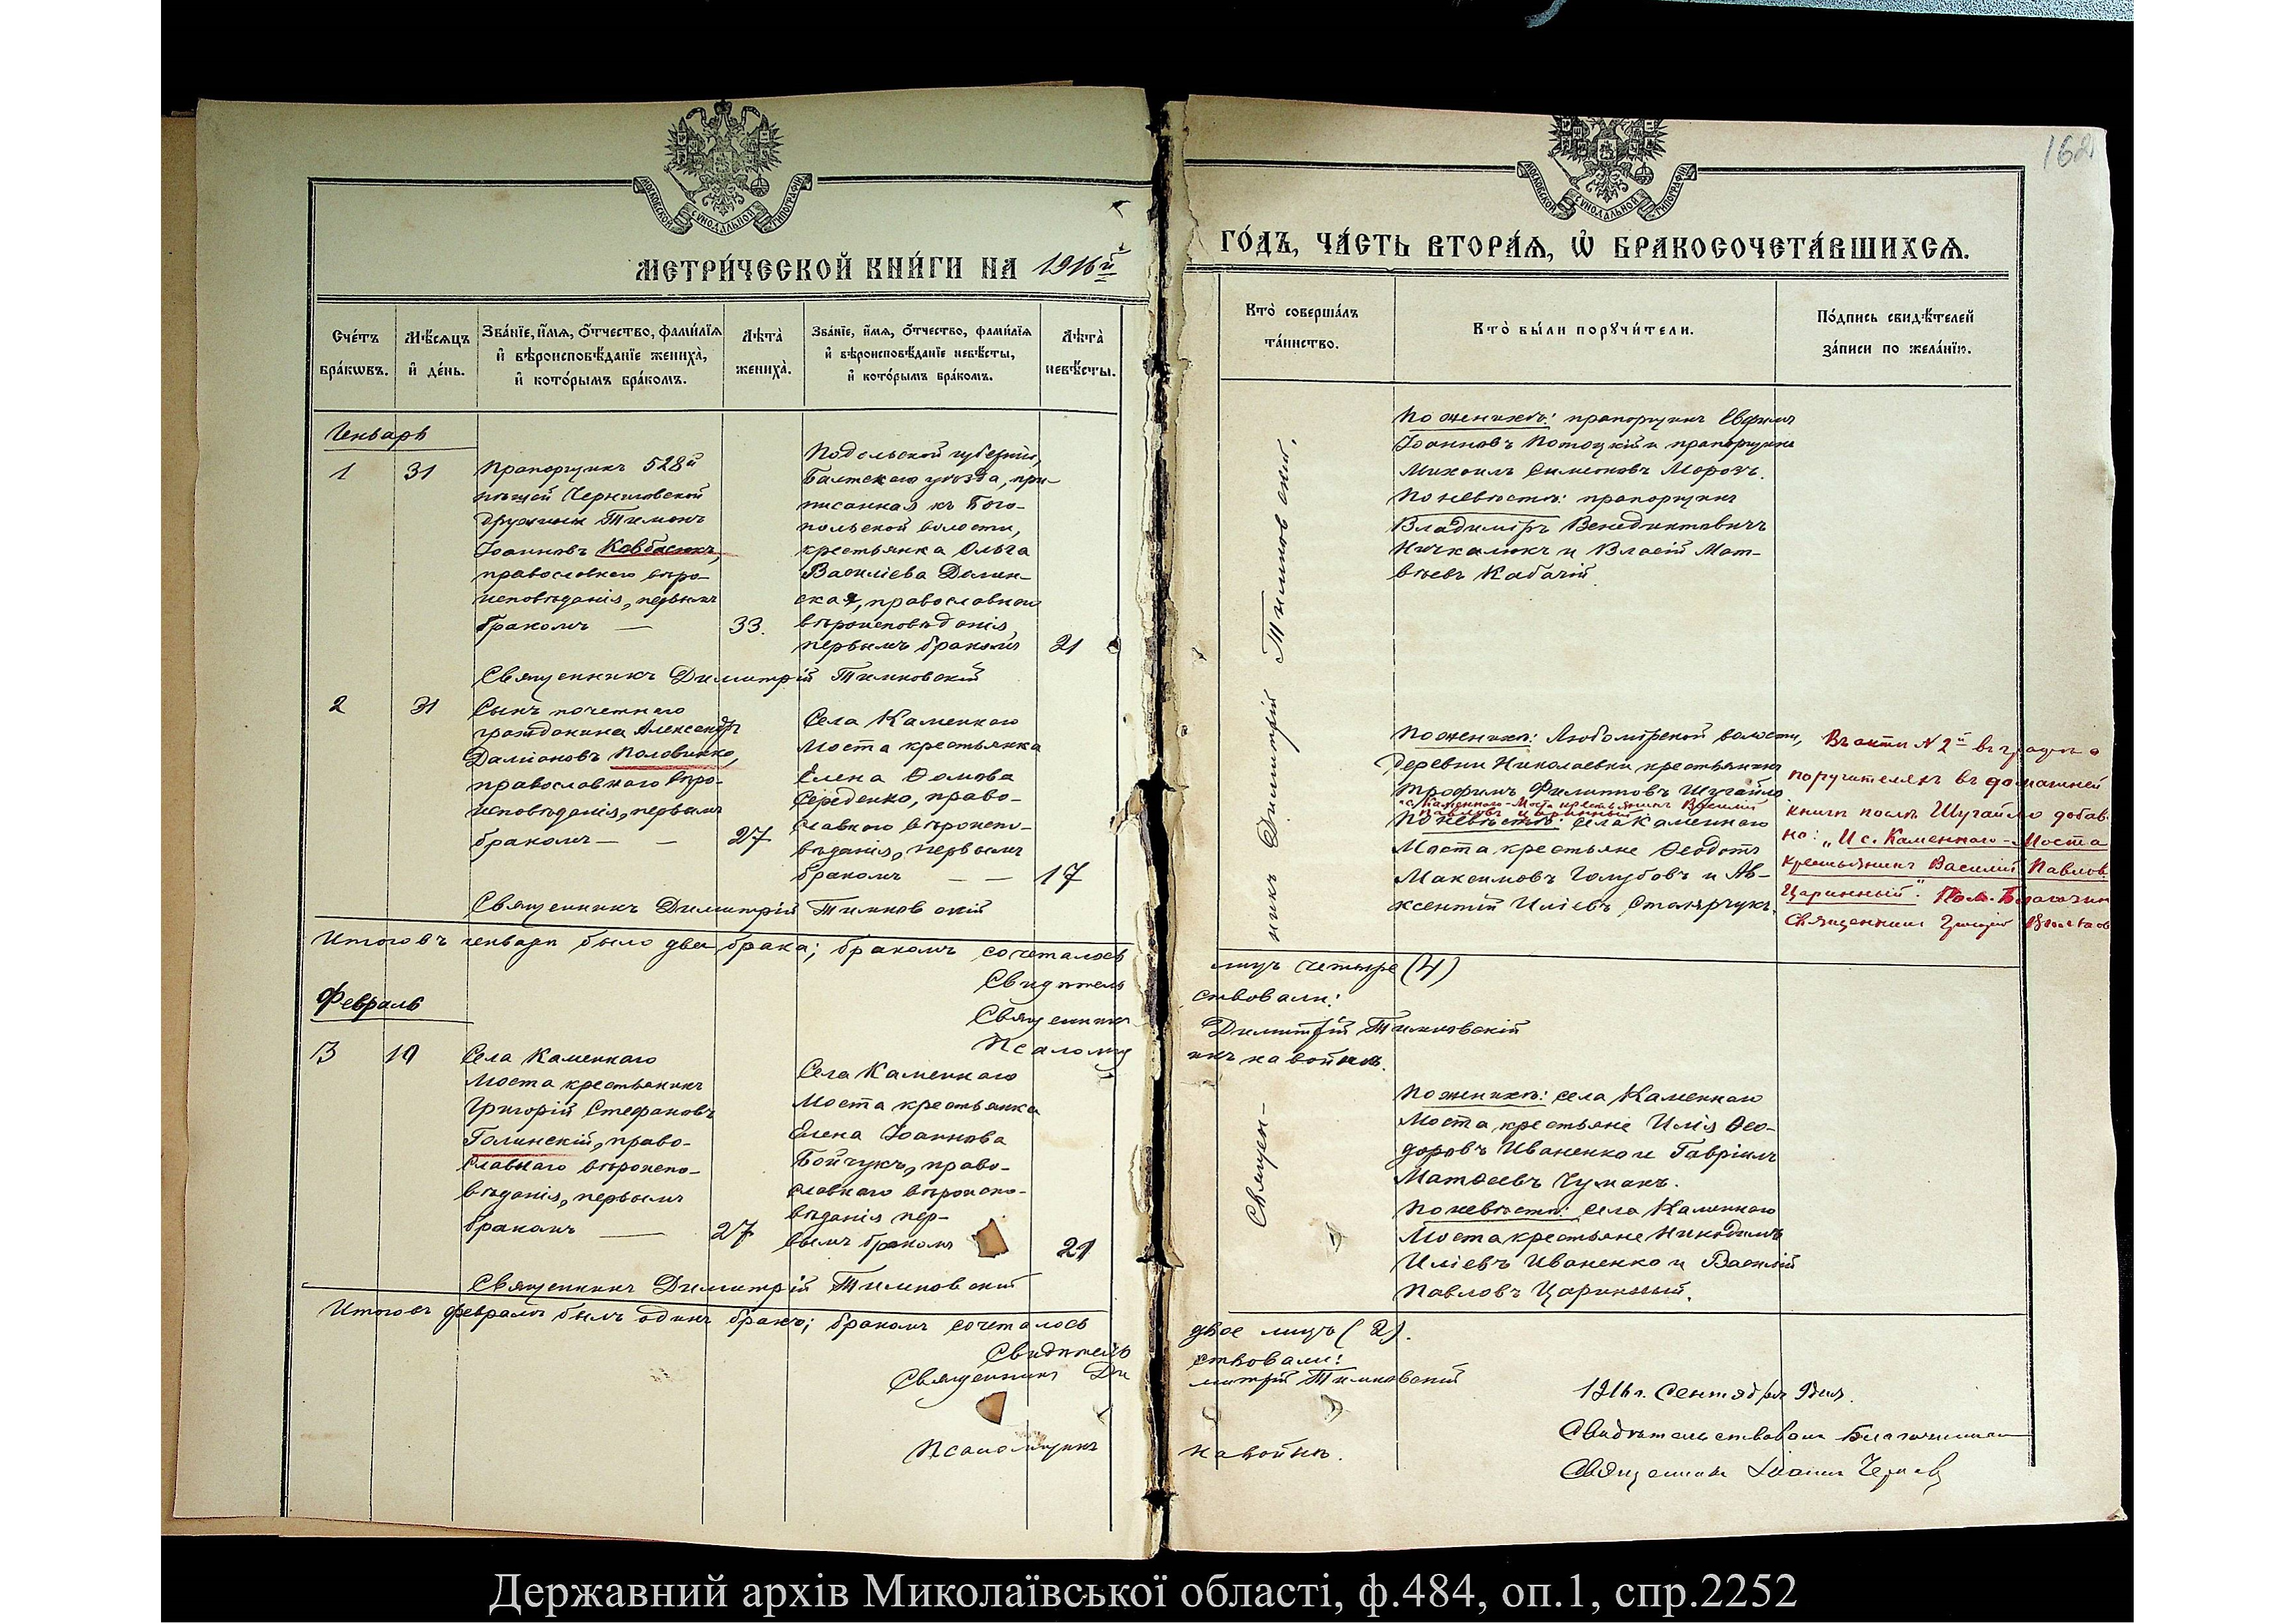 162
МОСКОВСКОЙ СѴНОДАЛЬНОЙ ТИПОГРАФІИ
МОСКОВСКОЙ СѴНОДАЛЬНОЙ ТИПОГРАФІИ
МЕТРИ́ЧЕСКОЙ КНИ́ГИ НА 1916й
ГО́ДЪ, ЧА́СТЬ ВТОРА́Я, Ѡ҆ БРАКОСОЧЕТА́ВШИХСѦ.
Сче́тъ бра́кωвъ.
Мѣ́сѧцъ и҆ де́нь.
Зва́нїе, и҆́мѧ, ѻ҆́тчество, фами́лїѧ
и҆ вѣроисповѣ́данїе жениха̀,
и҆ кото́рымъ бра́комъ.
Лѣта̀ жениха̀.
Зва́нїе, и҆́мѧ, ѻ҆́тчество, фами́лїѧ
и҆ вѣроисповѣ́данїе невѣ́сты,
и҆ кото́рымъ бра́комъ.
Лѣта̀ невѣ́сты.
Кто̀ соверша́лъ
та́инство.
Кто̀ бы́ли порꙋчи́тели.
По́дпись свидѣ́телей
за́писи по жела́нїю.
Генварь
1
31
Прапорщикъ 528й
пѣшей Черниговской
дружины Тимонъ
Іоанновъ Ковбасюкъ,
православнаго вѣро-
исповѣданія, первымъ
бракомъ —
33.
Подольской губерніи,
Балтскаго уѣзда, при-
писанная къ Бого-
польской волости,
крестьянка Ольга
Василіева Долин-
ская, православнаго
вѣроисповѣданія,
первымъ бракомъ
21
Священникъ Димитрій Тимковскій
По женихѣ: прапорщикъ Евфимъ
Іоанновъ Потоцкій и прапорщикъ
Михаилъ Симеоновъ Морозъ.
По невѣстѣ: прапорщикъ
Владиміръ Венедиктовичъ
Ничкалюкъ и Власій Мат-
вѣевъ Кабачій.
Священ-
никъ Димитрій Тимковскій.
2
31
Сынъ почетнаго
гражданина Александръ
Даміановъ Половинко,
православнаго вѣро-
исповѣданія, первымъ
бракомъ — —
27
Села Каменнаго
Моста крестьянка
Елена Ѳомова
Середенко, право-
славнаго вѣроиспо-
вѣданія, первымъ
бракомъ — —
17
Священникъ Димитрій Тимковскій
По женихѣ: Любомірской волости,
деревни Николаевки крестьянинъ
Трофимъ Филипповъ Шугайло
и с. Каменнаго-Моста крестьянинъ Василій
Павловъ Царинный
По невѣстѣ: села Каменнаго
Моста крестьяне Ѳеодотъ
Максимовъ Голубовъ и Ав-
ксентій Иліевъ Столярчукъ.
Въ акти № 2й въ графѣ о
поручителяхъ въ домашней
книгѣ послѣ Шугайло добав
но: „И с. Каменнаго-Моста
крестьянинъ Василій Павлов
Царинный". Пом. Благочин
Священникъ Григорій
Итого въ генварѣ было два брака; бракомъ сочеталось
лицъ четыре (4)
Свидѣтель
ствовали:
Священникъ
Димитрій Тимковскій
Псаломщ
икъ на войнѣ.
Февраль
3
19
Села Каменнаго
Моста крестьянинъ
Григорій Стефановъ
Голинскій, право-
славнаго вѣроиспо-
вѣданія, первымъ
бракомъ —
27
Села Каменнаго
Моста крестьянка
Елена Іоаннова
Бойчукъ, право-
славнаго вѣроиспо-
вѣданія пер-
вымъ бракомъ
21
Священникъ Димитрій Тимковскій
По женихѣ: села Каменнаго
Моста крестьяне Илія Ѳео-
доровъ Иваненко и Гавріилъ
Матѳеевъ Чумакъ.
По невѣстѣ: села Каменнаго
Моста крестьяне Никодимъ
Иліевъ Иваненко и Василій
Павловъ Царинный.
Итого въ февралѣ былъ одинъ бракъ; бракомъ сочеталось
двое лицъ (2).
Свидѣтель
ствовали:
Священникъ Ди
митрій Тимковскій
Псаломщикъ
на войнѣ.
1916 г. Сентября 9 дня.
Свидѣтельствовалъ Благочинный
Священникъ Іоаннъ
Державний архів Миколаївської області, ф.484, оп.1, спр.2252